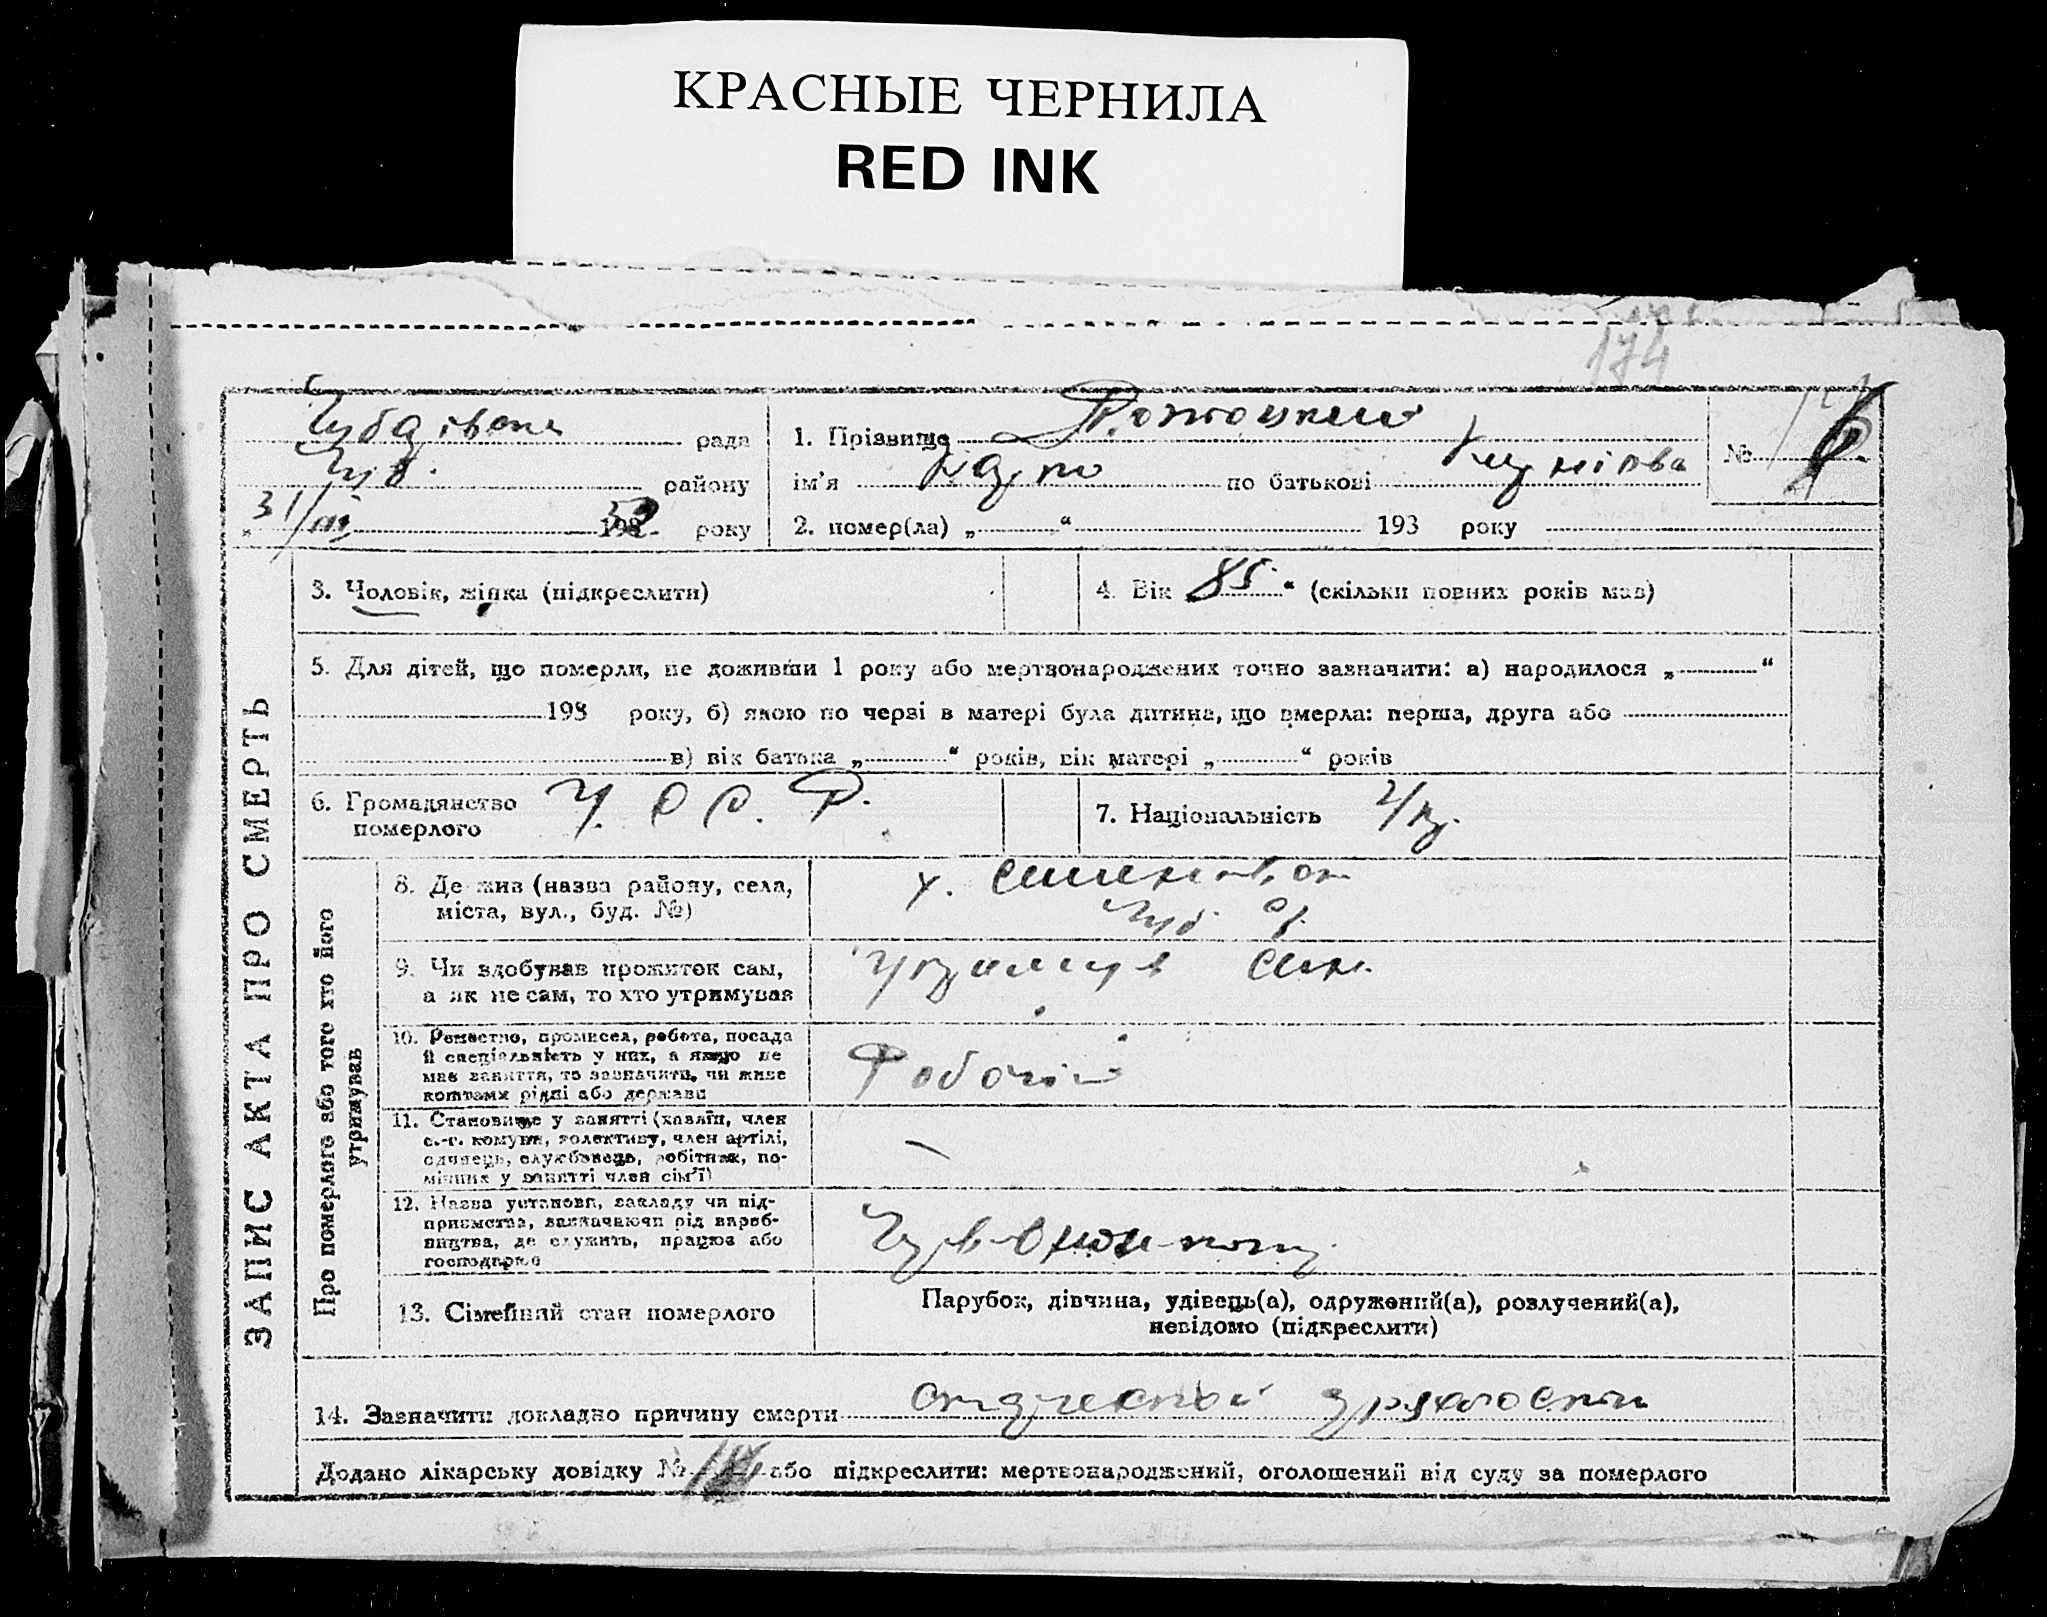 КРАСНЫЕ ЧЕРНИЛА
RED INK
174
рада
району
31/III 193 року
1. Прізвище
ім'я по батькові
№
2. помер(ла) „ “ 193 року
ЗАПИС АКТА ПРО СМЕРТЬ
3. Чоловік, жінка (підкреслити)
4. Вік 85 “ (скільки повних років мав)
5. Для дітей, що померли, не доживши 1 року або мертвонароджених точно зазначити: а) народилося „ “
193 року, б) якою по черзі в матері була дитина, що вмерла: перша, друга або
в) вік батька „ “ років, вік матері „ “ років
6. Громадянство
померлого
У. С С. Р.
7. Національність Укр.
Про померлого або того хто його
утримував
8. Де жив (назва району, села,
міста, вул., буд. №)
х.
9. Чи здобував прожиток сам,
а як не сам, то хто утримував
син.
10. Ремество, промисел, робота, посада
й спеціяльність у них, а якщо не
має заняття, то зазначити, чи живе
коштами рідні або держави
Робочій
11. Становище у занятті (хазяїн, член
с.-г. комуни, колективу, член артілі,
одинець, службовець, робітник, по-
мічник у занятті член сім'ї)
—
12. Назва установи, закладу чи під-
приємства, зазначаючи рід вироб-
ництва, де служить, працює або
господарює
13. Сімейний стан померлого
Парубок, дівчина, удівець(а), одружений(а), розлучений(а),
невідомо (підкреслити)
14. Зазначити докладно причину смерти
Додано лікарську довідку № або підкреслити: мертвонароджений, оголошений від суду за померлого